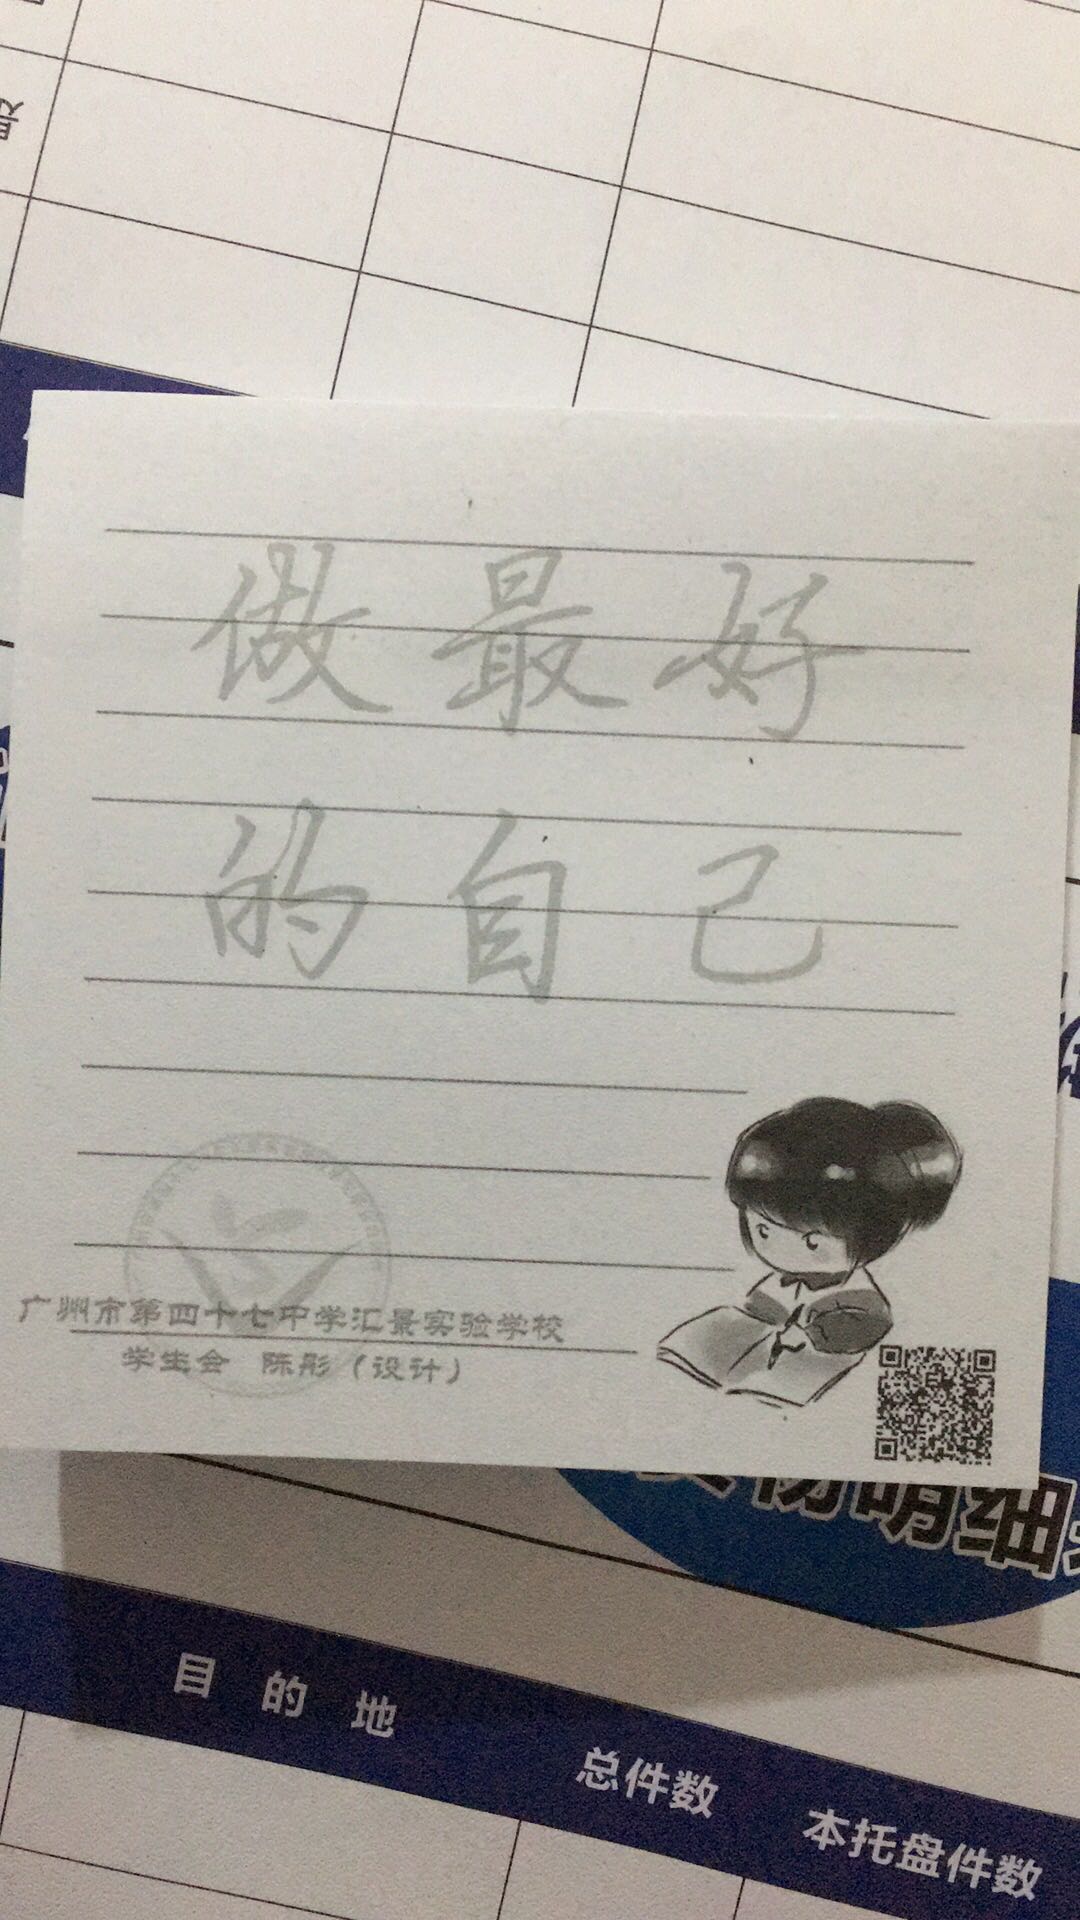 做最好
的自己
广州市第四十七中学汇景实验学校
学生会 陈彤（设计）
明细
目的地
总件数
本托盘件数